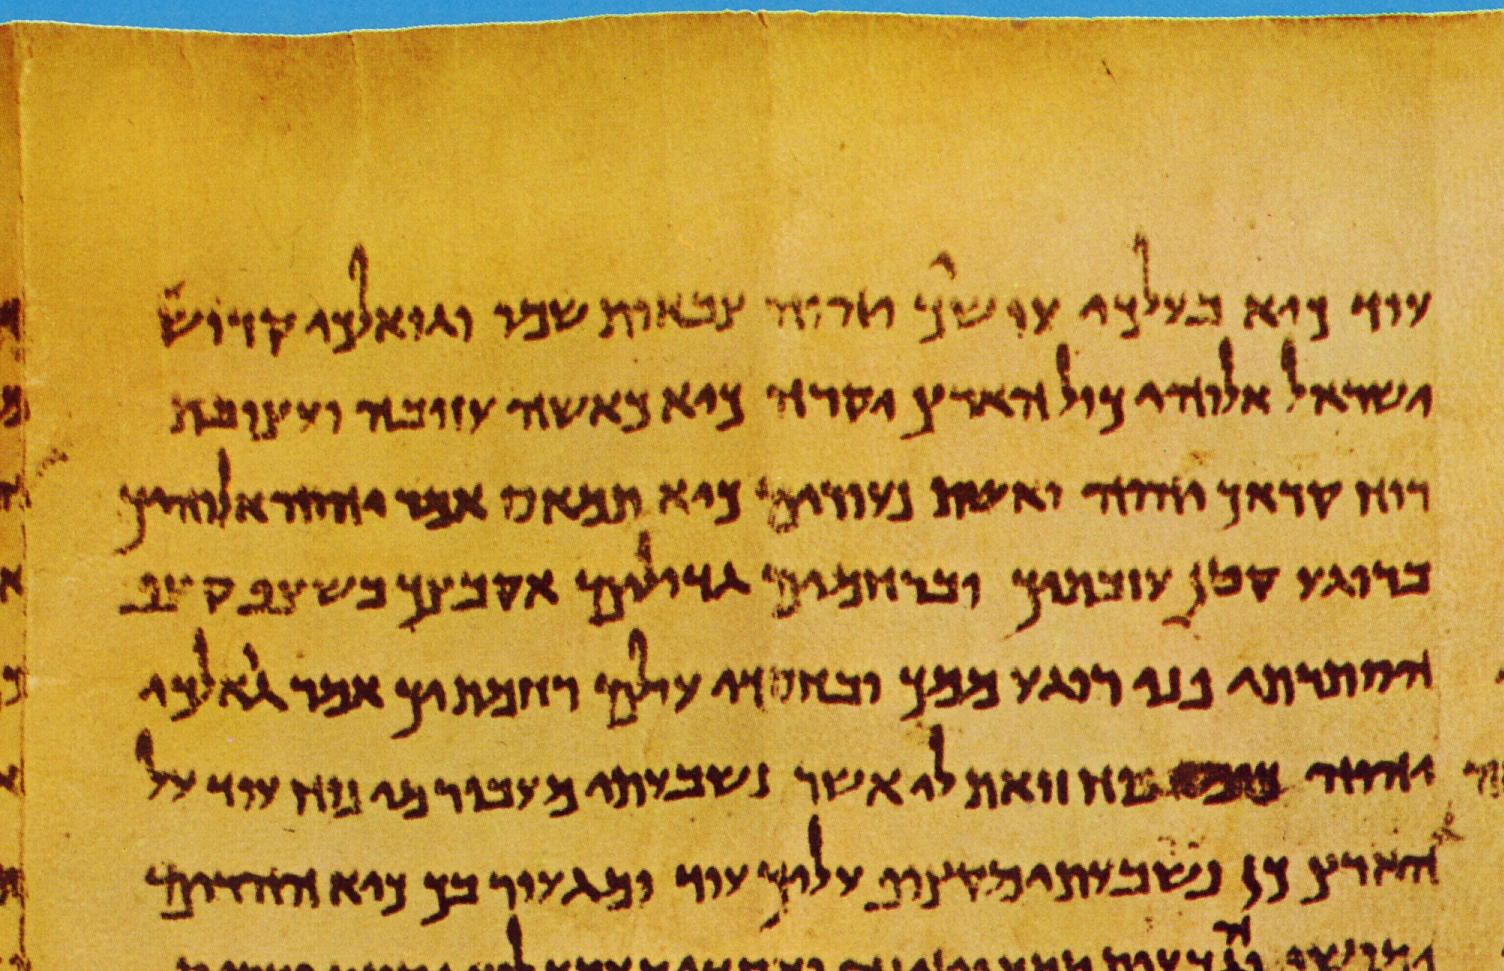 עוד כיא בעלכי עושיך יהוה צבאות שמו וגואלכי קדוש
ישראל אלוהי כול הארץ יקרה כיא כאשה עזובה ועצובת
רוח קראך יהוה ואשת נעורים כיא תמאס אמר יהוה אלוהיך
ברוגע קטן עזבתיך וברחמים גדולים אקבצך בשצף קצף
הסתרתי פני רוגע ממך ובחסדי עולם רחמתיך אמר גואלכי
יהוה נוח זואת לי אשר נשבעתי מעבור מי נוח עוד על
הארץ כן נשבעתי מקצוף עליך עוד ומגעור בך כיא ההרים